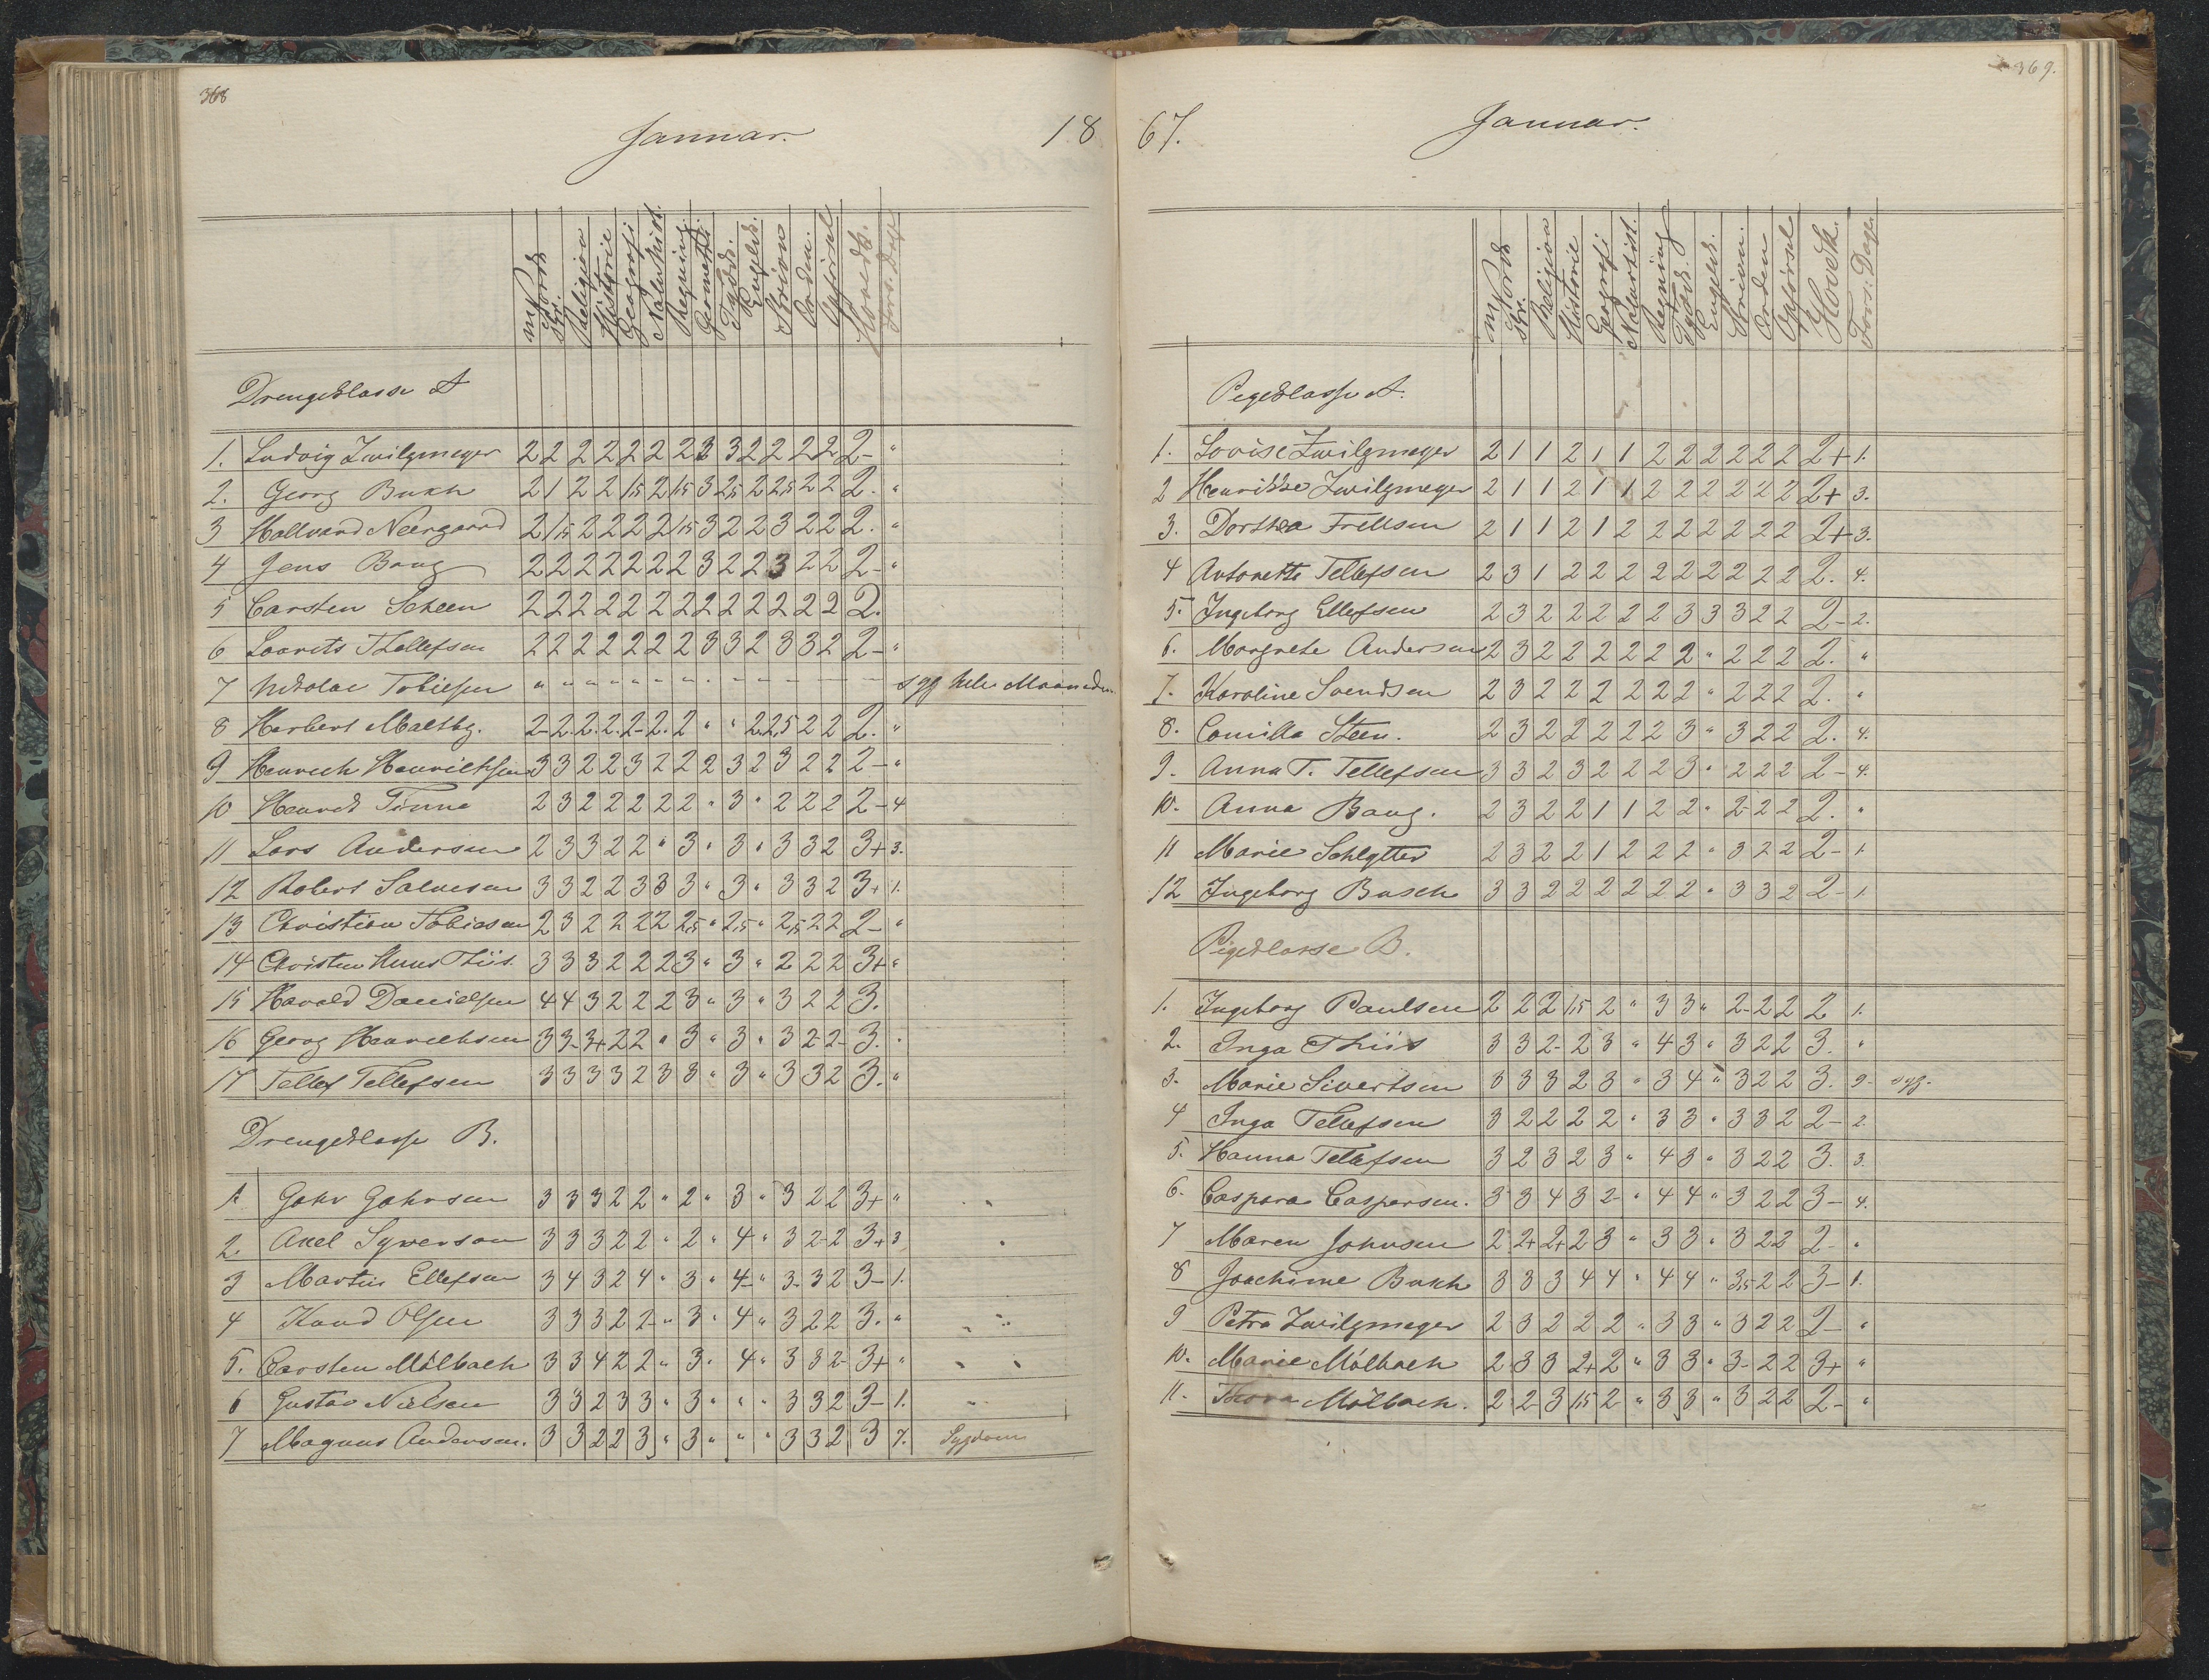 368
Januar.
18
Religion
Historie
Geografi
Naturhist.
Regning
Geometri
Tydsk.
Engelsk.
Skrivn
Orden.
Opførsel
Hovedk.
Drengeklasse A
1. Ludvig Zwilgmeyer 2 2 2 2 2 2 2 3 3 2 2 2 2 2- "
2. Georg Bukh 2 1 2 2 1,5 2 1,5 3 2,5 2 2,5 2 2 2. "
3 Hallvard Neergaard 2 1,5 2 2 2 2 1,5 3 2 2 3 2 2 2. "
4 Jens Bang 2 2 2 2 2 2 2 3 2 2 3 2 2 2- "
5 Carsten Scheen 2 2 2 2 2 2 2 2 2 2 2 2 2 2.
6 Lavrits Thellefsen 2 2 2 2 2 2 2 3 3 2 3 3 2 2- "
7 Nikolai Tobiesen " " " " " " " " syg hele Maaneden
8 Herbert Maltby. 2- 2. 2. 2. 2- 2. 2 " " 2. 2,5 2 2 2. "
9 Henrich Henrichsen 3 3 2 2 3 2 2 2 3 2 3 2 2 2- "
10 Henrik Tönne 2 3 2 2 2 2 2 " 3 " 2 2 2 2- 4
11 Lars Andersen 2 3 3 2 2 " 3 " 3 " 3 3 2 3+ 3.
12 Robert Salvesen 3 3 2 2 3 3 3 " 3 " 3 3 2 3+ 1.
13 Christian Tobiasen 2 3 2 2 2 2 2,5 " 2,5 " 2,5 2 2 2- "
14 Christen Huus Thiis. 3 3 3 2 2 2 3 " 3 " 2 2 2 3+ "
15 Harald Danielsen 4 4 3 2 2 2 3 " 3 " 3 2 2 3.
16 Georg Henrichsen 3 3- 3+ 2 2 " 3 " 3 " 3 2- 2- 3. "
17 Tellef Tellefsen 3 3 3 3 2 3 3 " 3 " 3 3 2 3. "
Drengeklasse B.
1. Gahr Gahrsen 3 3 3 2 2 " 2 " 3 " 3 2 2 3+ "
2. Axel Syverson 3 3 3 2 2 " 2 " 4 " 3 2 2 3+ 3
3 Martin Ellefsen 3 4 3 2 4 " 3 " 4- " 3- 3 2 3- 1.
4 Knud Olsen 3 3 3 2 2- " 3 " 4 " 3 2 2 3. "
5. Carsten Mölbach 3 3 4 2 2 " 3 " 4 " 3 3 2- 3+ "
6 Gustav Nielsen 3 3 2 3 3 " 3 " " " 3 3 2 3- 1.
7 Magnus Andersen. 3 3 2 2 3 " 3 " " " 3 3 2 3 7. Sygdom
369.
67.
Januar.
Religion
Historie
Geografi
Naturhist.
Regning
Tydsk.
Engelsk.
Skrivn.
Orden
Opførsel
Hovedk.
Fors: Dage.
Pigeklasse A.
1. Lovise Zwilgmeyer 2 1 1 2 1 1 2 2 2 2 2 2 2+ 1.
2 Henrikke Zwilgmeyer 2 1 1 2 1 1 2 2 2 2 2 2 2+ 3.
3. Dorthea Frellsen 2 1 1 2 1 2 2 2 2 2 2 2 2+ 3.
4 Antonette Tellefsen 2 3 1 2 2 2 2 2 2 2 2 2 2. 4.
5. Ingeborg Ellefsen 2 3 2 2 2 2 2 3 3 3 2 2 2- 2.
6. Margrethe Andersen 2 3 2 2 2 2 2 2 " 2 2 2 2. "
7. Karoline Svendsen 2 3 2 2 2 2 2 2 " 2 2 2 2. "
8. Camilla Steen. 2 3 2 2 2 2 2 3 " 3 2 2 2. 4.
9. Anna T. Tellefsen 3 3 2 3 2 2 2 3 " 2 2 2 2- 4.
10. Anna Bang. 2 3 2 2 1 1 2 2 " 2- 2 2 2. "
11 Marie Schlytter 2 3 2 2 1 2 2 2 " 3 2 2 2- 1.
12 Ingeborg Busch 3 3 2 2 2 2 2 2 " 3 3 2 2- 1.
Pigeklasse B.
1. Ingeborg Paulsen 2 2 2 1,5 2 " 3 3 " 2- 2 2 2 1.
2. Inga Thiis 3 3 2- 2 3 " 4 3 " 3 2 2 3. "
3. Marie Sivertsen 3 3 3 2 3 " 3 4 " 3 2 2 3. 9. syg.
4 Inga Tellefsen 3 2 2 2 2 " 3 3 " 3 3 2 2- 2.
5. Hanna Tellefsen 3 2 3 2 3 " 4 3 " 3 2 2 3. 3.
6. Caspara Caspersen. 3 3 4 3 2- " 4 4 " 3 2 2 3- 4.
7 Maren Johnsen 2 2+ 2+ 2 3 " 3 3 " 3 2 2 2- "
8 Joachime Bukh 3 3 3 4 4 " 4 4 " 3,5 2 2 3- 1.
9 Petra Zwilgmeyer 2 3 2 2 2 " 3 3 " 3 2 2 2- "
10. Marie Mölbach 2 3 3 2+ 2 " 3 3 " 3- 2 2 3+ "
11. Thora Mölbach. 2 2- 3 1,5 2- " 3 3 " 3 2 2 2- "